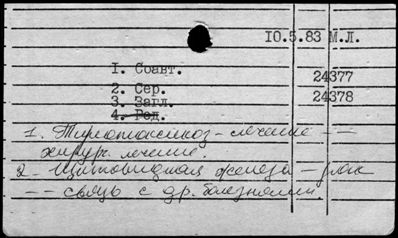 10.5.83 М.Л.
1. Соавт.
24377
2. Сер.
24378
3. Загл.
4. Ред.
1. - лечение --
хирург. лечение.
2. Щитовидная железа - рак
-- связь с др. болезнями.